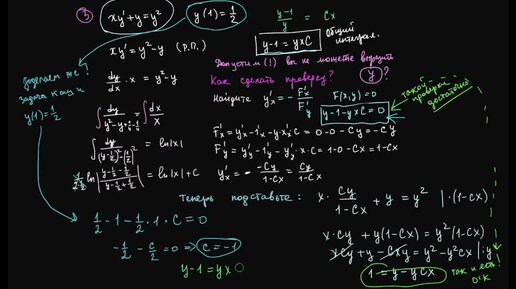 ③ xy' + y = y² , y(1) = 1/2
xy' = y² - y (Р.П.)
dy/dx · x = y² - y
∫ dy/(y² - y + 1/4 - 1/4) = ∫ dx/x
∫ dy/((y - 1/2)² - (1/2)²) = ln|x|
1/(2·1/2) ln |(y - 1/2 - 1/2)/(y - 1/2 + 1/2)| = ln|x| + C
задача Коши
y(1) = 1/2
1/2 - 1 - 1/2 · 1 · C = 0
-1/2 - C/2 = 0 => C = -1
y - 1 = yx
(y - 1)/y = Cx
y - 1 = yxC
общий интеграл.
Допустим (!) вы не можете выразить y
Как сделать проверку?
Найдите y'x = - F'x/F'y
F(x,y) = 0
y - 1 - yxC = 0
такой проверки достаточно
F'x = y'x - 1'x - y·x'x C = 0 - 0 - Cy = -Cy
F'y = y'y - 1'y - y'y · x · C = 1 - 0 - Cx = 1 - Cx
y'x = - (-Cy)/(1 - Cx) = Cy/(1 - Cx)
Теперь подставьте: x · Cy/(1 - Cx) + y = y² | · (1 - Cx)
x · Cy + y(1 - Cx) = y²(1 - Cx)
xCy + y - Cxy = y² - y²Cx | : y
1 = y - yCx
так и есть! О'К